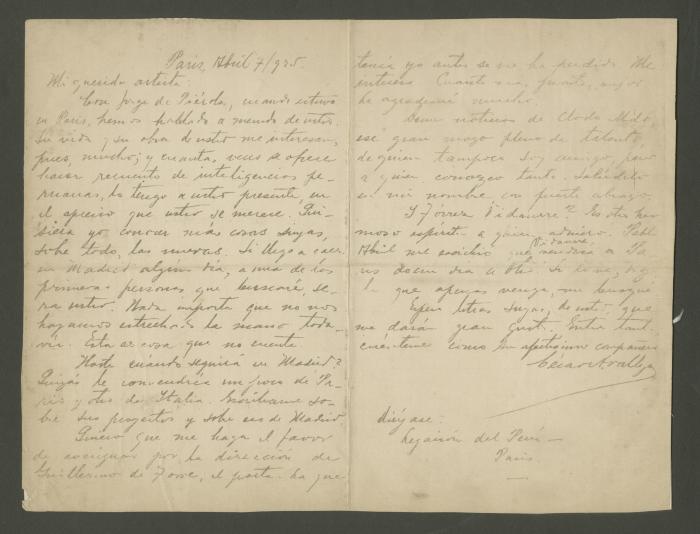 Paris, Abril 7/925.
Mi querido artista:
Con Jorge de Piérola, cuando estuvo
en París, hemos hablado a menudo de usted.
Su vida, su obra de usted me interesan,
pues, mucho; y cuantas veces se ofrece
hacer recuento de inteligencias pe-
ruanas, lo tengo a usted presente, en
el aprecio que usted se merece. Qui-
siera yo conocer más cosas suyas,
sobre todo, las nuevas. Si llego a caer
en Madrid algún día, una de las
primeras personas que buscaré, se-
rá usted. Nada importa que no nos
hayamos estrechado la mano toda-
vía. Esta es cosa que no cuenta.
Hasta cuándo seguirá en Madrid?
Quizás le convendría un poco de Pa-
rís y otro de Italia. Escríbame so-
bre sus proyectos y sobre eso de Madrid.
Quiero que me haga el favor
de averiguar por la dirección de
Guillermo de Torre, el poeta. La que
tenía yo antes se me ha perdido. Me
interesa. Cuanto más pronto, mejor
le agradeceré mucho.
Deme noticias de
ese gran mozo pleno de talento,
de quien tampoco soy amigo, pero
a quien conozco tanto. Salúdelo
en mi nombre con fuerte abrazo.
Y Vidaurre? Es otro her-
moso espíritu a quien admiro.
Abril me escribió que Vidaurre vendría a Pa-
rís
que apenas venga, me busque.
Espero letras suyas, de usted, que
me darán gran gusto. Entre tanto
cuénteme como su afectísimo compañero
César A. Vallejo
Diríjase:
Legación del Perú –
París.